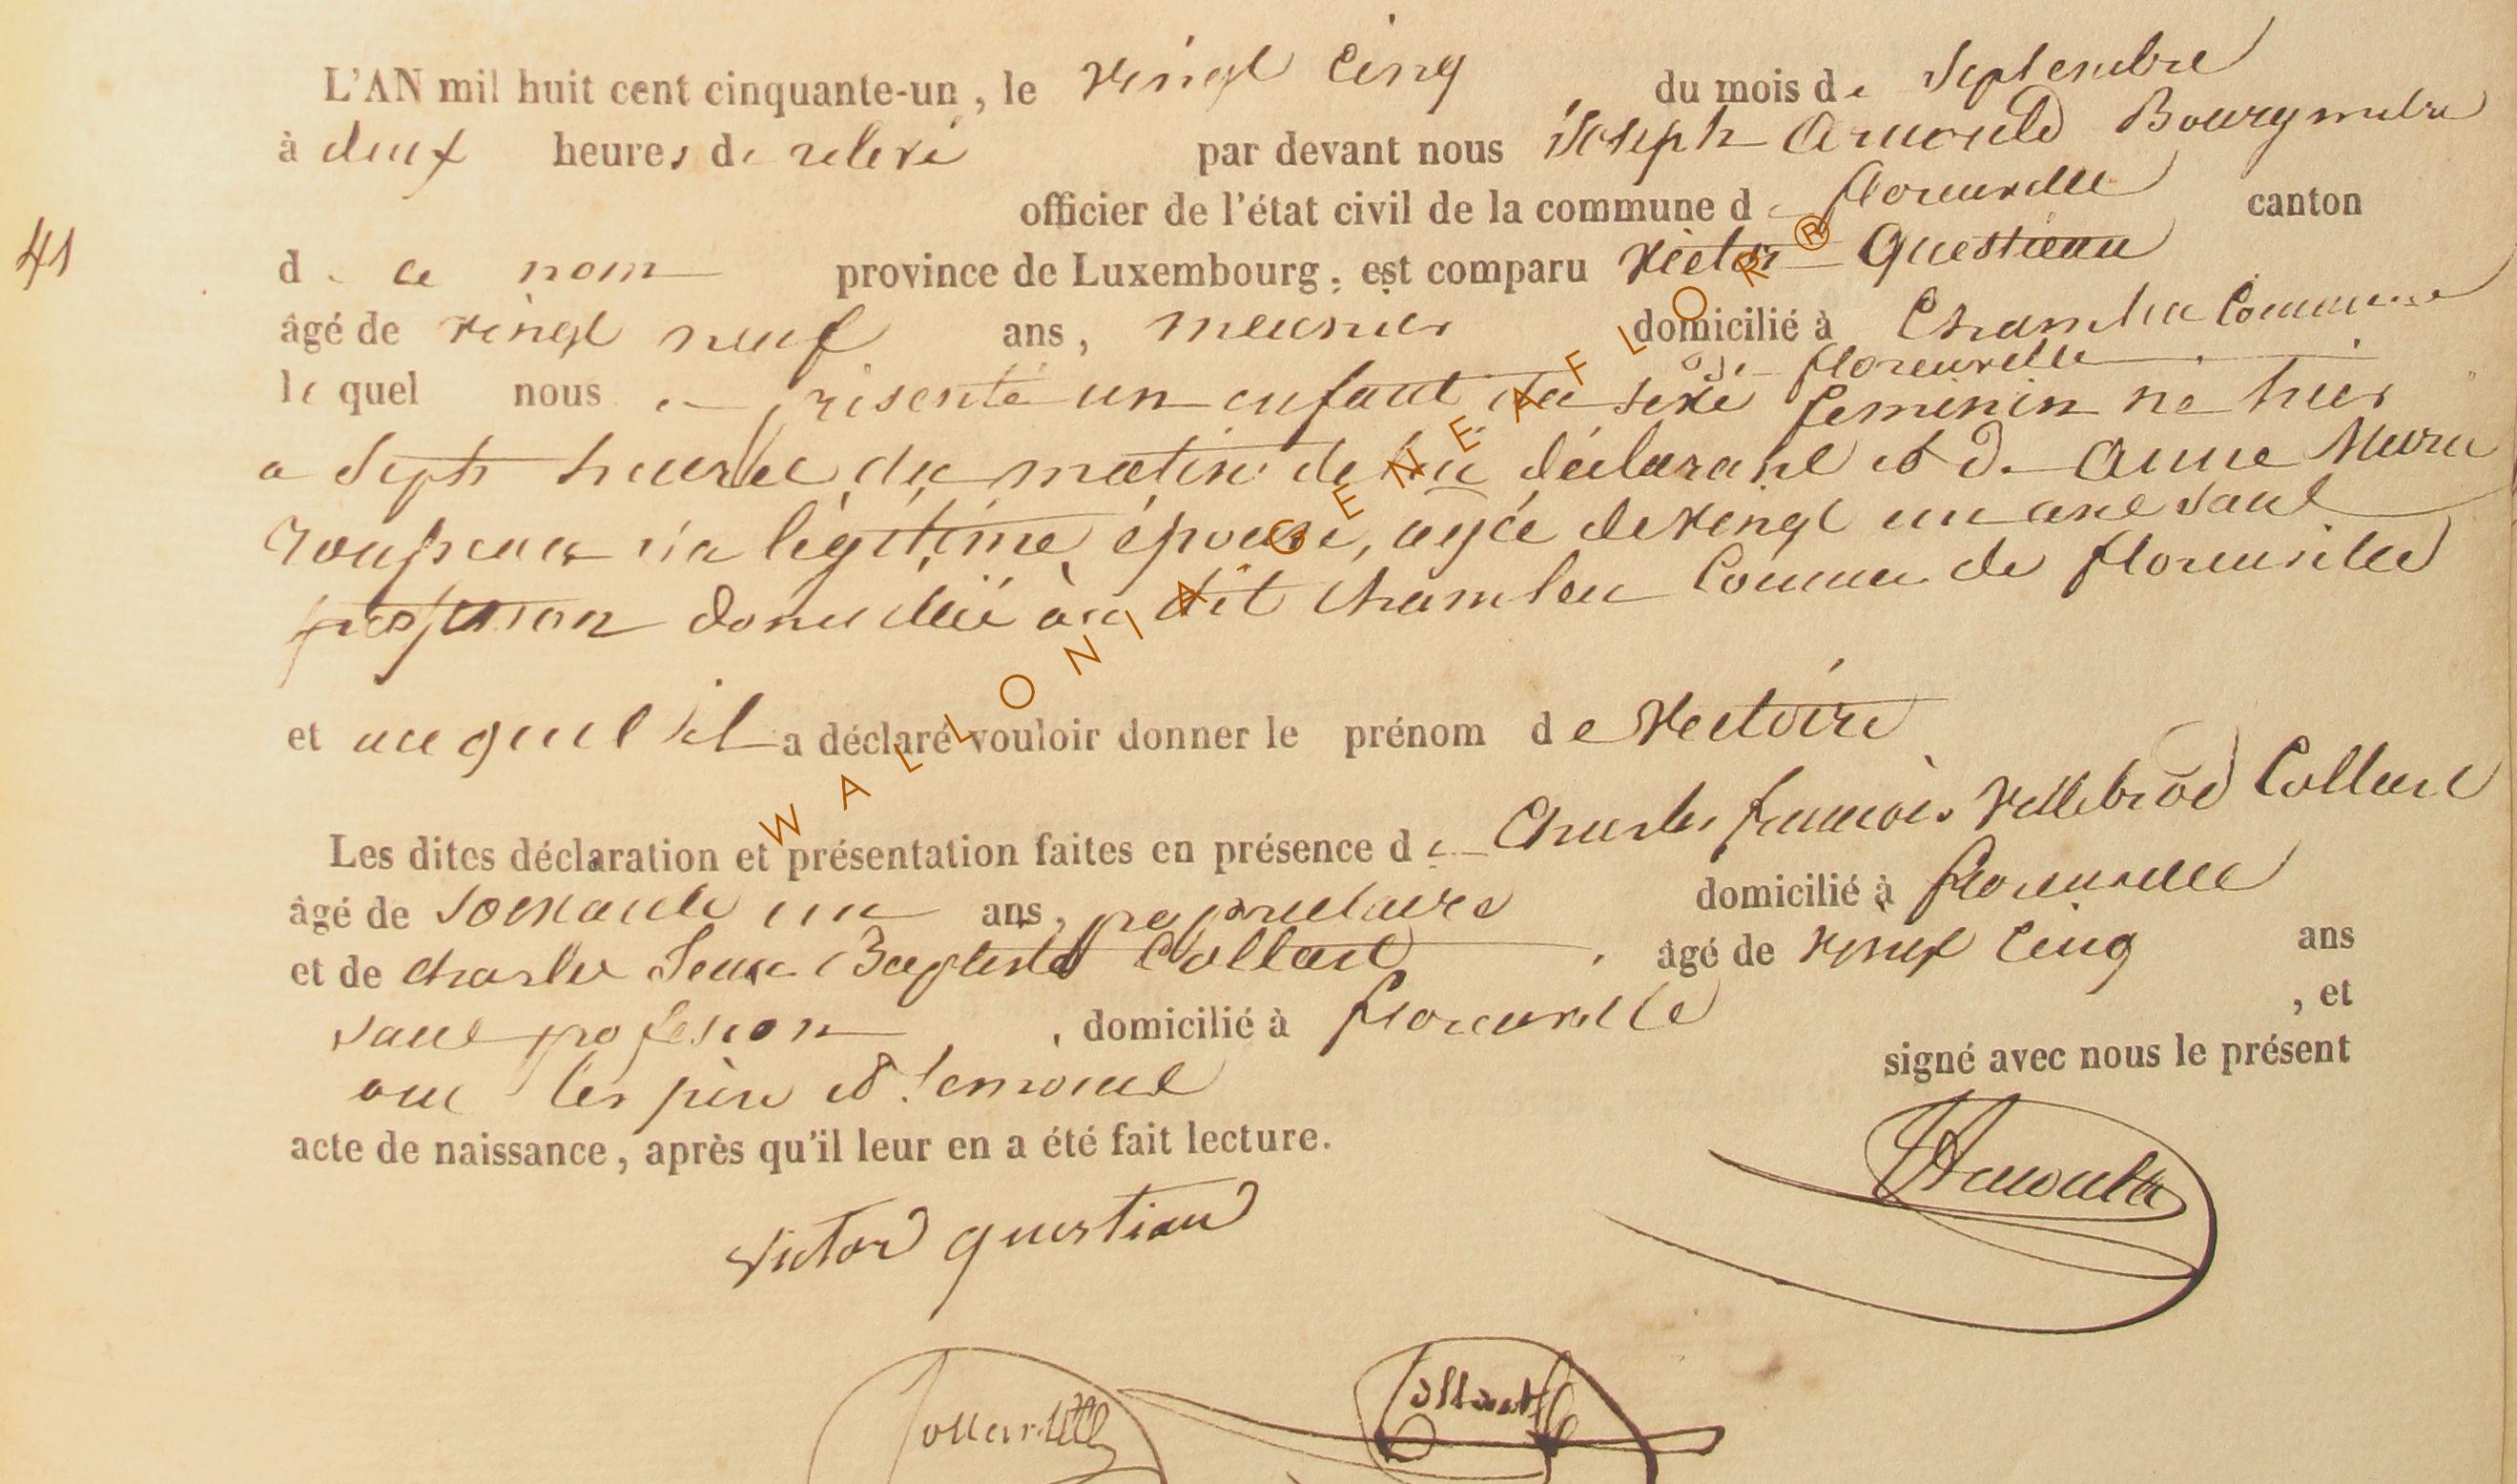 L'AN mil huit cent cinquante-un, le vingt cinq du mois de Septembre
à deux heures de relevé par devant nous Joseph Arnould Bourgmestre
officier de l'état civil de la commune de florenville canton
41
de ce nom province de Luxembourg, est comparu Victor Questiau
âgé de vingt neuf ans, meunier domicilié à Chameleu Commune
de florenville
lequel nous a présenté un enfant du sexe feminin né hier
a Sept heures du matin de lui déclarant et de Anne Marie
sa légitime épouse, agée de vingt un ans sans
profession domicilié au dit Chameleu Commune de florenville
et auquel il a déclaré vouloir donner le prénom de Victoire
Les dites déclaration et présentation faites en présence de Charles françois Villebrod Collart
âgé de soixante un ans, propriétaire domicilié à florenville
et de charles Jean Baptiste Collart, âgé de vingt cinq ans
sans profession, domicilié à florenville, et
ont les père et temoins signé avec nous le présent
acte de naissance, après qu'il leur en a été fait lecture.
Arnould
Victor questiau
Collart Collart
WALLONIA GENEAFLOR®